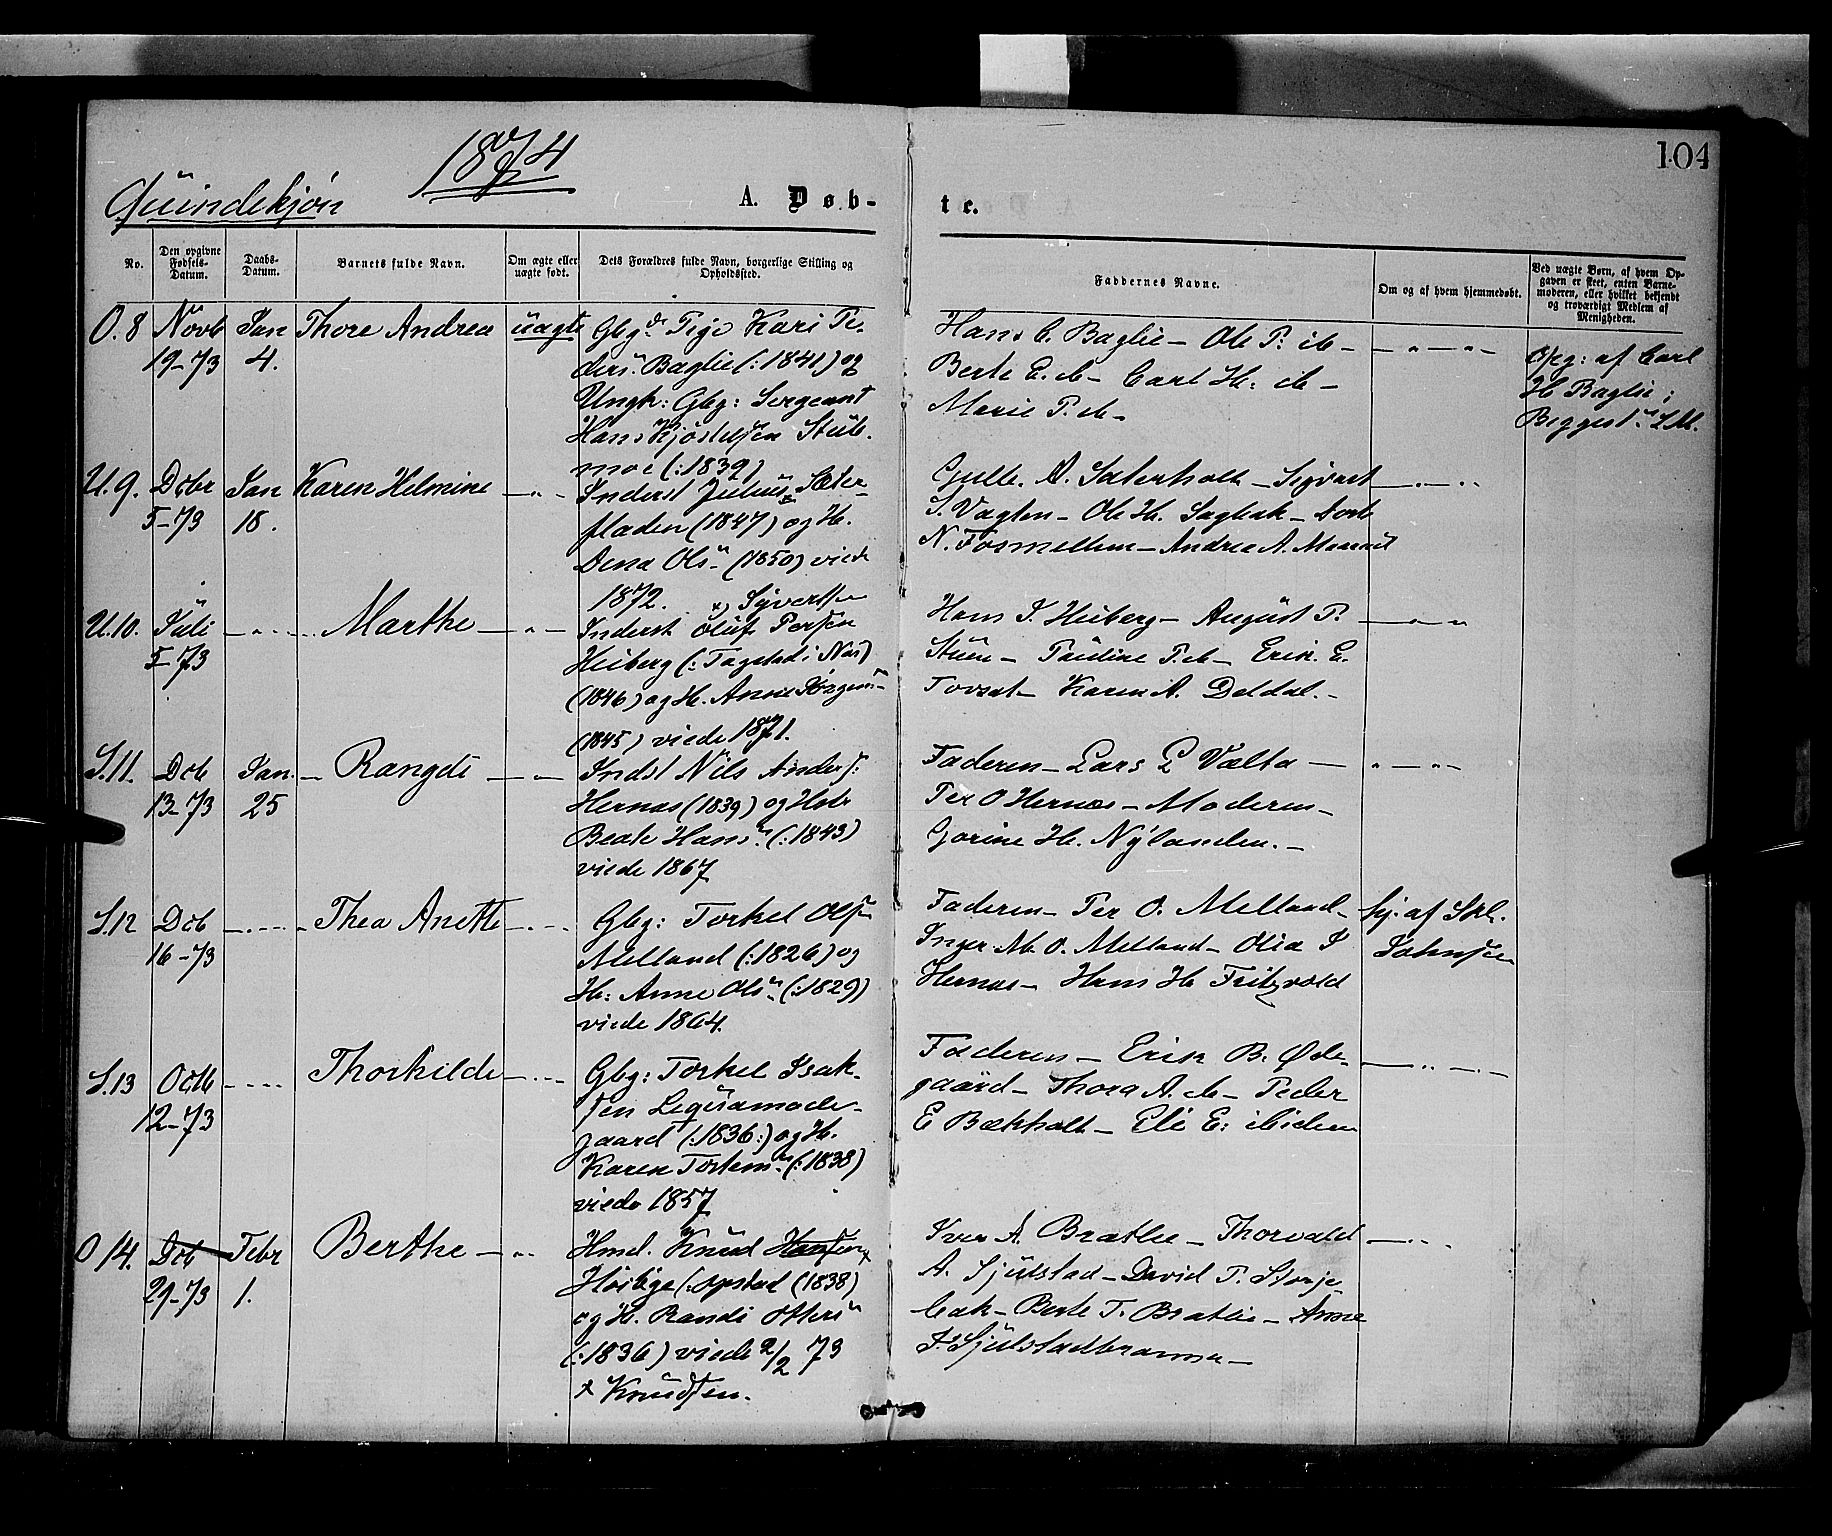 1874
104
Qvindekjøn
A. Døb-
te.
No.
Den opgivne Fødsels-Datum.
Daabs-Datum.
Barnets fulde Navn.
Om ægte eller uægte født.
Dets Forældres fulde Navn, borgerlige Stilling og Opholdssted.
Faddernes Navne.
Om og af hvem hjemmedøbt.
Ved uægte Børn, af hvem Opgaven er skeet, enten Barnemoderen, eller hvilket bekjendt og troværdigt Medlem af Menigheden.
O. 8 Novb 19-73 Jan 4. Thore Andrea uægte
Gbgd. Pige Kari Pe-
ders. Baglie (:1841) og
Ungk: Gbg: Sergeant
Hans Kjøstelsen Stub-
moe (:1839)
Hans C. Baglie - Ole P. ib -
Berte E. ib - Carl H. ib -
Marie P. ib -
Opg: af Carl
H Baglie;
U. 9. Dcbr 5-73 Jan 18. Karen Helmine
Inderst Julius x Sæter-
fladen (1847) og H.
Dena Ols. (1850) viede
1872. x) Syvertsen
Gulle. A. Saterholt - Sigvart
S. Vagten - Ole H. Sagbak - Dorte
N. Fosmellem - Andrea A.
U. 10. Juli 5-73 Marthe
Inderst Oluf Persen
Heiberg (: Fagstad i Næs)
(1846) og H. Anne
(1845) viede 1871.
Hans J. Heiberg - August P.
Stuen - Pauline P. ib - Erik E.
- Karen A. Deldal. -
S. 11. Dcb 13-73 Jan. 25 Rangdi
Indst Nils Anders:
Hernæs (1839) og Hstr
Beate Hans. (:1843)
viede 1867
Faderen - Lars L Vælta -
Per O Hernæs - Moderen -
Gorine H. Nylanden. -
S. 12 Dcb 16-73 Thea Anette
Gbg: Torkel Olsen
Melland (:1826) og
H: Anne Ols. (:1829)
viede 1864.
Faderen - Per O. Melland -
Inger M. O. Melland - Olia J
Hernæs - Hans H Fritzvold
hj. af Skl.
Johnsen
S. 13 Octb 12-73 Thorkilde
Gbg: Torkel Isak-
sen Legusamode-
gaard (:1836:) og H.
Karen Torstens. (:1838)
viede 1857
Faderen - Erik B. Øde-
gaard - Thora A. ib - Peder
E Bækholt - Eli E: ibidem
O 14. Dcb 29-73 Febr 1. Berthe
Hmd. Knud Hansen x
Høibye (: Opstad (1838)
og H. Randi Otters
(:1836) viede 2/2 73
x Knudsen.
Iver A. Bratlie - Thorvald
A. Sjulstad - David P. Storje-
bak - Berte T. Bratlie - Anne
J. Sjulstadbraanen -